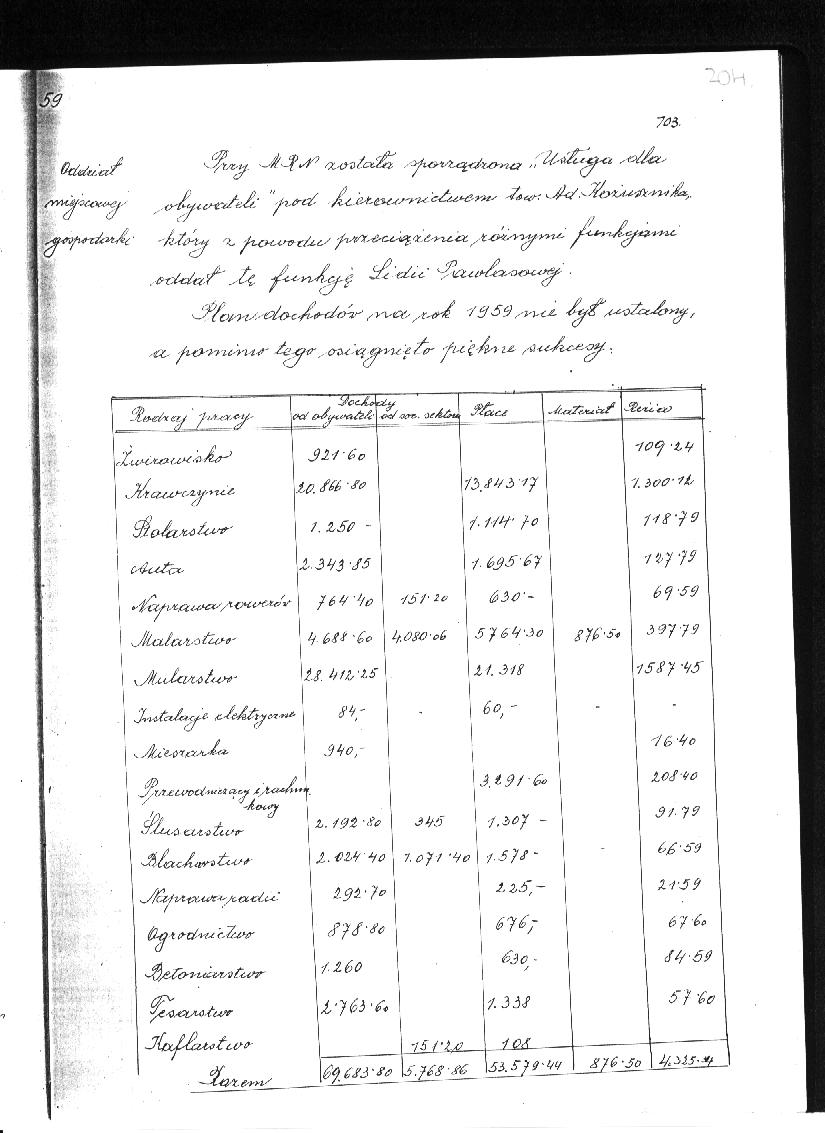 204
59
703.
Oddział
miejscowej
gospodarki
Przy MRN została sporządzona „Usługa dla
obywateli" pod kierownictwem tow. Ad. Kożusznika,
który z powodu przeciążenia różnymi funkcjami
oddał tę funkcję Lidii Pawlasowej.
Plan dochodów na rok 1959 nie był ustalony,
a pomimo tego osiągnięto piękne sukcesy.
Rodzaj pracy Dochody od obywateli od soc. sektoru Płace Materiał Reżia
Żwirowisko 921·60 109·24
Krawczynie 20.866·80 13.843·17 1.300·12
Stolarstwo 1.250 - 1.114·70 118·79
Auta 2.343·85 1.695·67 127·79
Naprawa rowerów 764·40 151·20 630·- 69·59
Malarstwo 4.688·60 4.080·06 5764·30 876·50 397·79
Mularstwo 28.412·25 21.318 1587·45
Instalacje elektryczne 84,- - 60,- - -
Mieszarka 940,- 16·40
Przewodniczący i rachun
kowy 3.291·60 208·40
Ślusarstwo 2.192·80 345 1.307 - 91·79
Blacharstwo 2.024·40 1.071·40 1.578- - 66·59
Naprawa radii 292·70 225,- 21·59
Ogrodnictwo 878·80 676,- 67·60
Betoniarstwo 1.260 630,- 84·59
Tesarstwo 2·763·60 1.338 57·60
Kaflarstwo 151·20 108
Razem 69.683·80 5.768·86 53.579·44 876·50